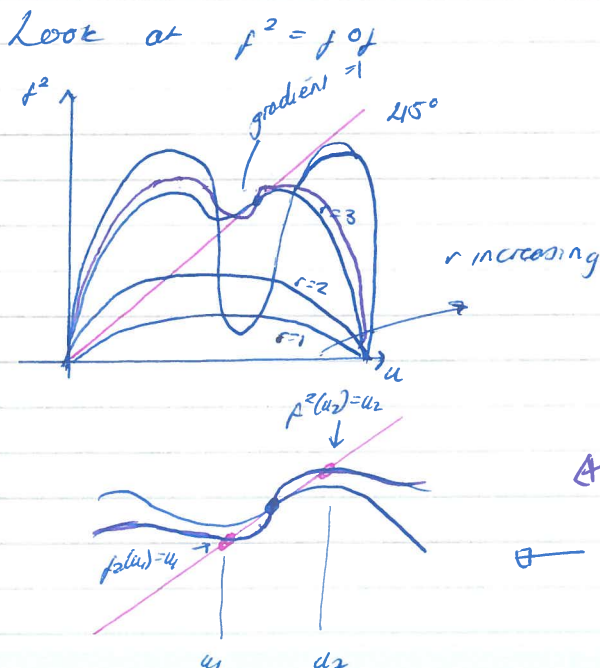 Look at f² = f o f
f²
gradient =1
45°
r=3
r increasing
r=2
r=1
u
f²(u₂)=u₂
f²(u₁)=u₁
u₁ u₂